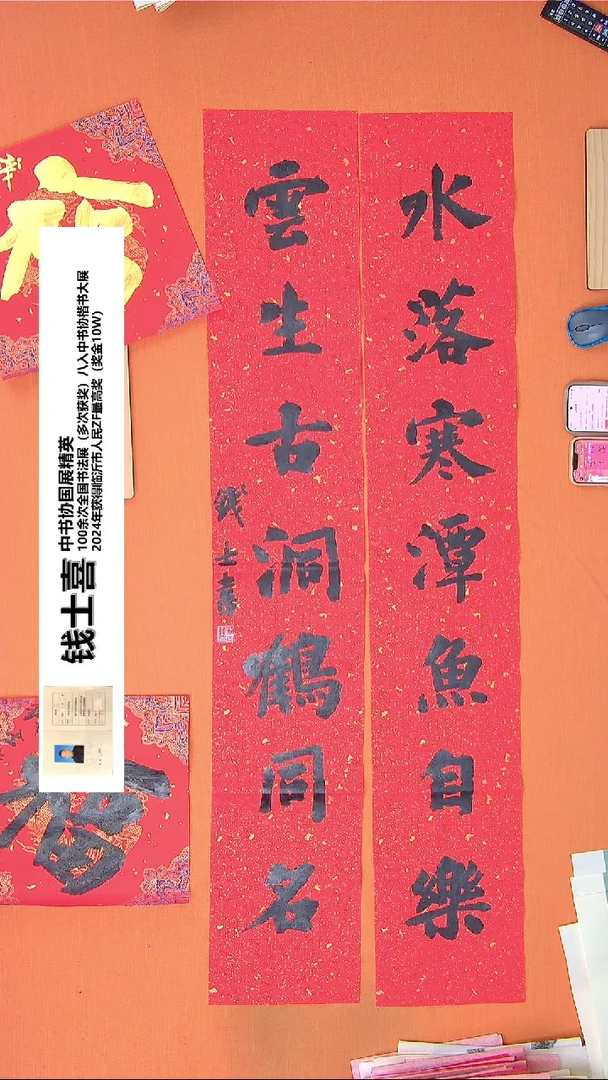 水落寒潭魚自樂
雲生古洞鶴同名
钱士喜
福
福
钱士喜
中书协国展精英
100余次全国书法展（多次获奖）八入中书协楷书大展
2024年获得临沂市人民ZF最高奖（奖金10W）